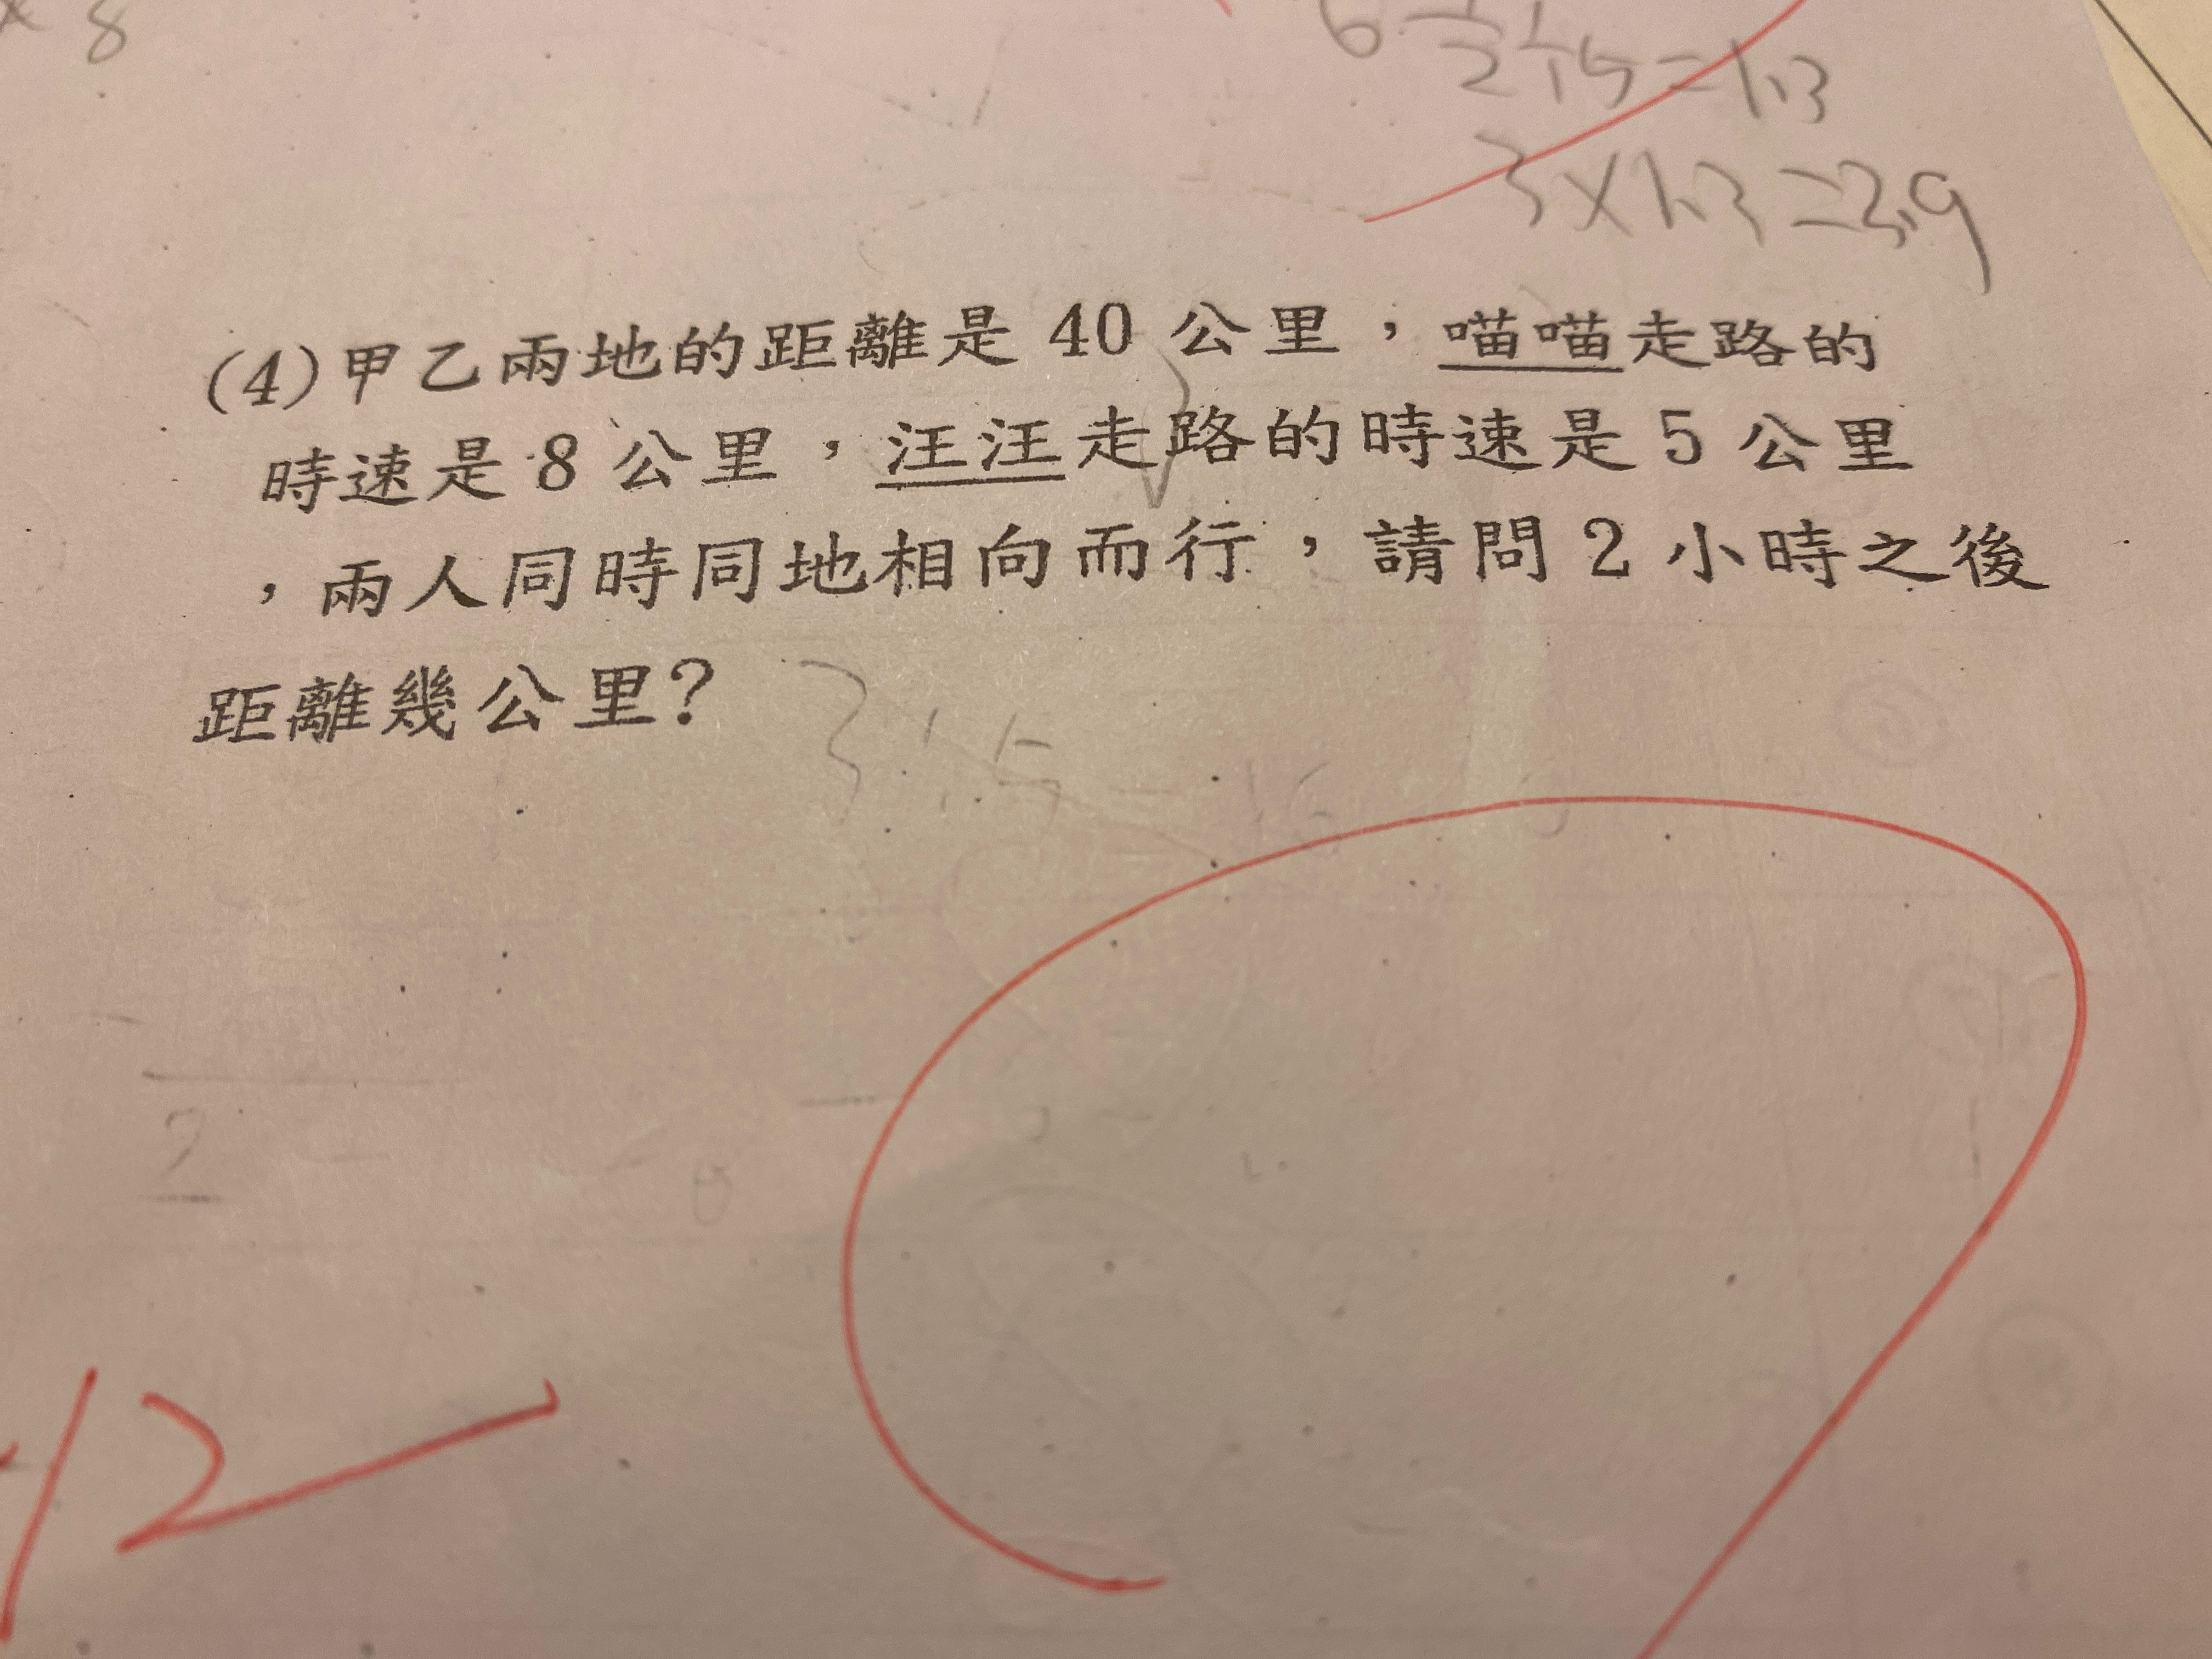 × 8
3×1.3=3.9
(4)甲乙兩地的距離是 40 公里，喵喵走路的
時速是 8 公里，汪汪走路的時速是 5 公里
，兩人同時同地相向而行，請問 2 小時之後
距離幾公里?
2
-12